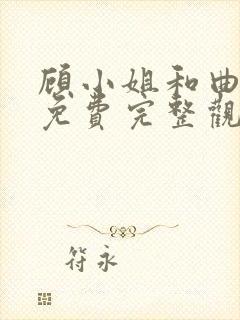 顾小姐和曲
免费完整觀
符永